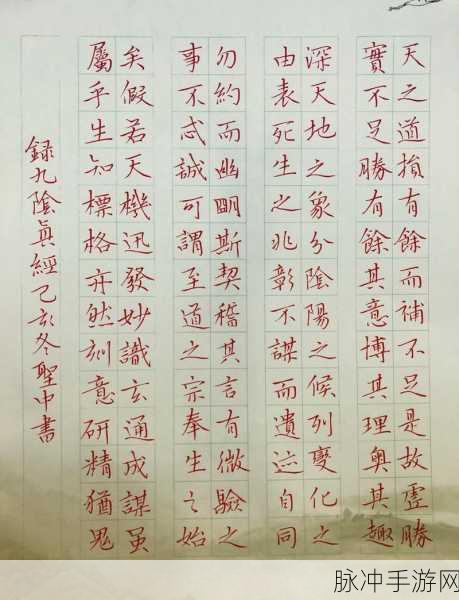 天之道損有餘而補不足是故虛勝
實不足勝有餘其意博其理奧其趣
深天地之象分陰陽之候列變化之
由表死生之兆彰不謀而遺迹自同
勿約而幽明斯契稽其言有微驗之
事不忒誠可謂至道之宗奉生之始
矣假若天機迅發妙識玄通成謀虽
屬乎生知標格亦然刻意研精猶鬼
録九陰眞經己亥冬聖中書
脉冲手游网